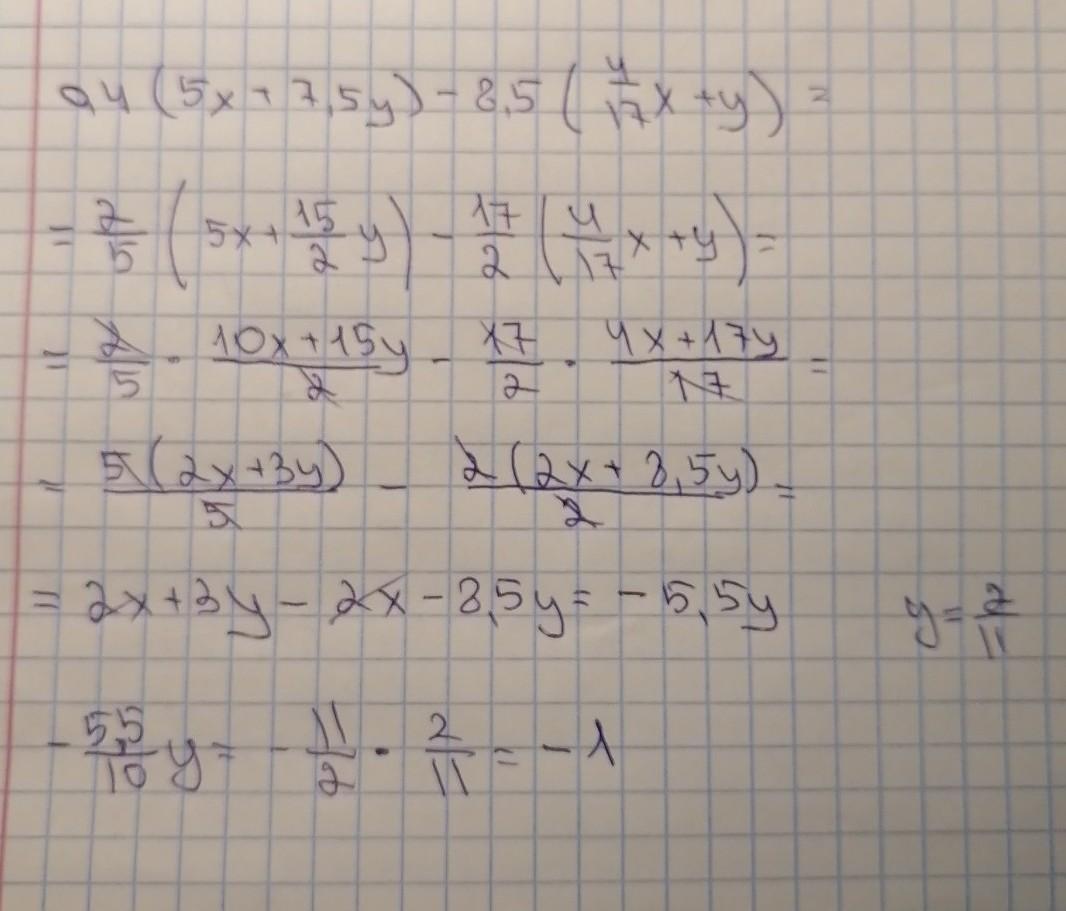 0,4 (5x + 7,5y) - 8,5 (4/17 x + y) =
= 2/5 (5x + 15/2 y) - 17/2 (4/17 x + y) =
= 2/5 · (10x + 15y)/2 - 17/2 · (4x + 17y)/17 =
= 5(2x + 3y)/5 - 2(2x + 8,5y)/2 =
= 2x + 3y - 2x - 8,5y = - 5,5y y = 2/11
- 5,5/10 y = - 11/2 · 2/11 = - 1